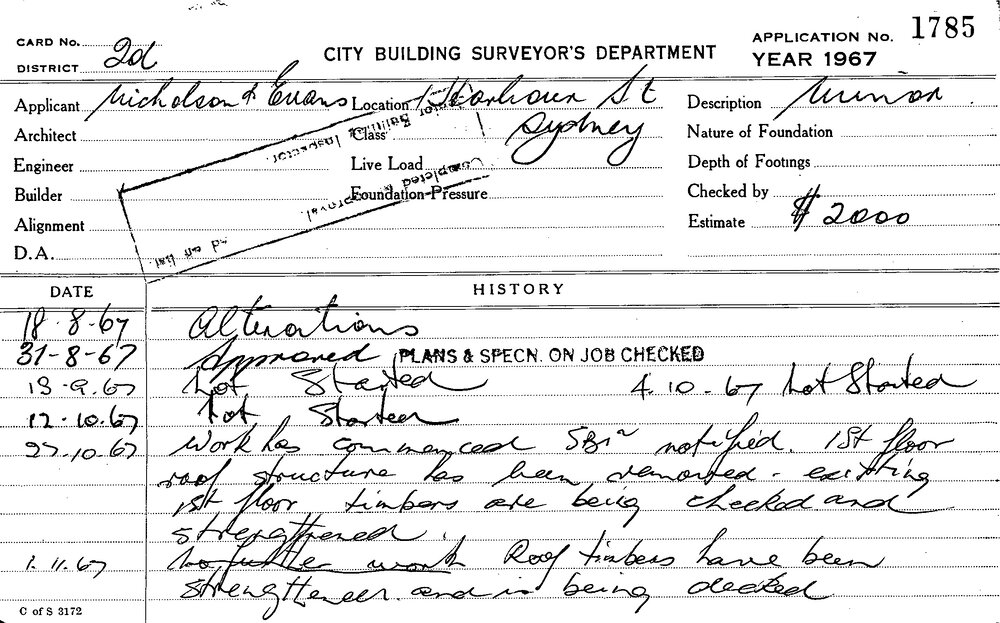 CARD No.
DISTRICT 2d
CITY BUILDING SURVEYOR'S DEPARTMENT
APPLICATION No. 1785
YEAR 1967
Applicant Nicholson & Evans Location Harbour St
Sydney
Description Minor
Architect Class
Nature of Foundation
Engineer Live Load
Depth of Footings
Builder Foundation Pressure
Checked by
Alignment
Estimate $2000
D.A.
Building Inspector.
Completed Approval.
DATE HISTORY
18-8-67 Alterations
31-8-67 Approved PLANS & SPECN. ON JOB CHECKED
13-9-67 Not Started 4.10-67 Not Started
12-10.67 Not Started
27-10.67 Work has commenced SBI notified. 1st floor
roof structure has been removed - existing
1st floor timbers are being checked and
strengthened.
1.11.67 No further work Roof timbers have been
strengthened and is being decked
C of S 3172